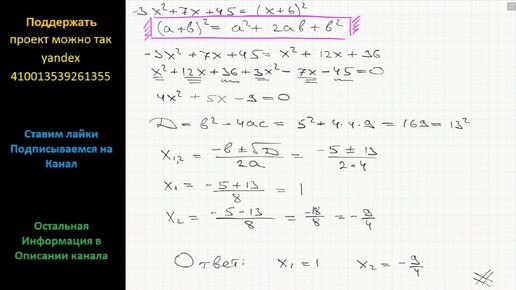 Поддержать
проект можно так
yandex
410013539261355
Ставим лайки
Подписываемся на
Канал
Остальная
Информация в
Описании канала
-3x²+7x+45= (x+6)²
(a+b)²= a²+ 2ab+b²
-3x²+7x+45= x²+ 12x+36
x²+12x+36+3x²-7x-45=0
4x²+5x-9=0
D=b²-4ac= 5²+4·4·9=169=13²
x₁,₂= (-b±√D)/(2a) = (-5±13)/(2·4)
x₁= (-5+13)/8 = 1
x₂= (-5-13)/8 = -18/8 = -9/4
Ответ: x₁=1 x₂=-9/4